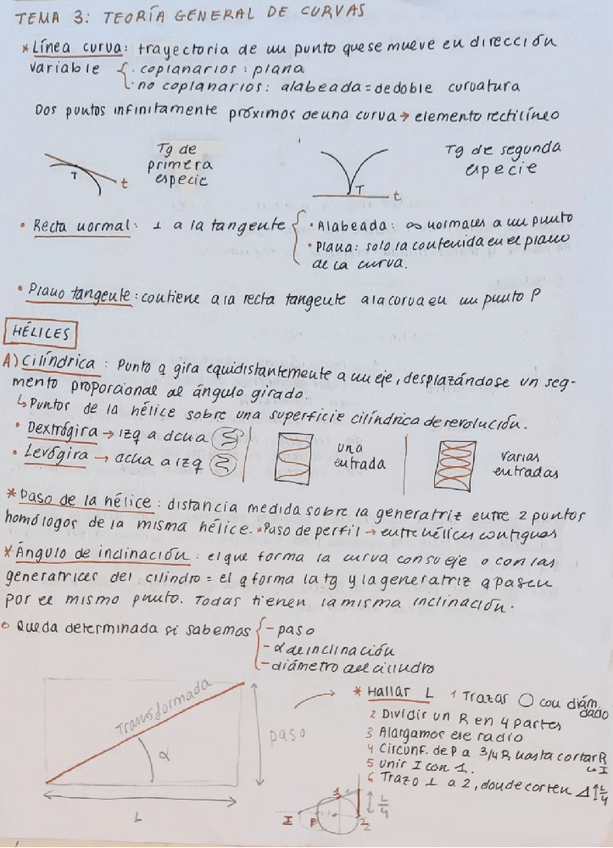 TEMA 3: TEORÍA GENERAL DE CURVAS
* Línea curva: trayectoria de un punto que se mueve en dirección
variable { · coplanarios: plana
· no coplanarios: alabeada = de doble curvatura
Dos puntos infinitamente próximos de una curva → elemento rectilíneo
Tg de
primera
especie
T
t
Tg de segunda
especie
T
t
• Recta normal: ⊥ a la tangente { · Alabeada: ∞ normales a un punto
· Plana: solo la contenida en el plano
de la curva.
• Plano tangente: contiene a la recta tangente a la curva en un punto P
HÉLICES
A) Cilíndrica: Punto q gira equidistantemente a un eje, desplazándose un seg-
mento proporcional al ángulo girado.
↳ Puntos de la hélice sobre una superficie cilíndrica de revolución.
• Dextrógira → izq a dcha
• Levógira → dcha a izq
una
entrada
varias
entradas
* Paso de la hélice: distancia medida sobre la generatriz entre 2 puntos
homólogos de la misma hélice. * Paso de perfil → entre hélices contiguas
* Ángulo de inclinación: el que forma la curva con su eje o con las
generatrices del cilindro = el q forma la tg y la generatriz q pasen
por el mismo punto. Todas tienen la misma inclinación.
○ Queda determinada si sabemos { - paso
- α de inclinación
- diámetro del cilindro
Transformada
α
paso
L
* Hallar L 1 Trazar ○ con diám.
dado
2 Dividir un R en 4 partes
3 Alargamos ese radio
4 Circunf. de P a 3/4 R hasta cortar R
↳ I
5 unir I con 1.
6 Trazo ⊥ a 2, donde corten L/4
I
P
1
2
L/4